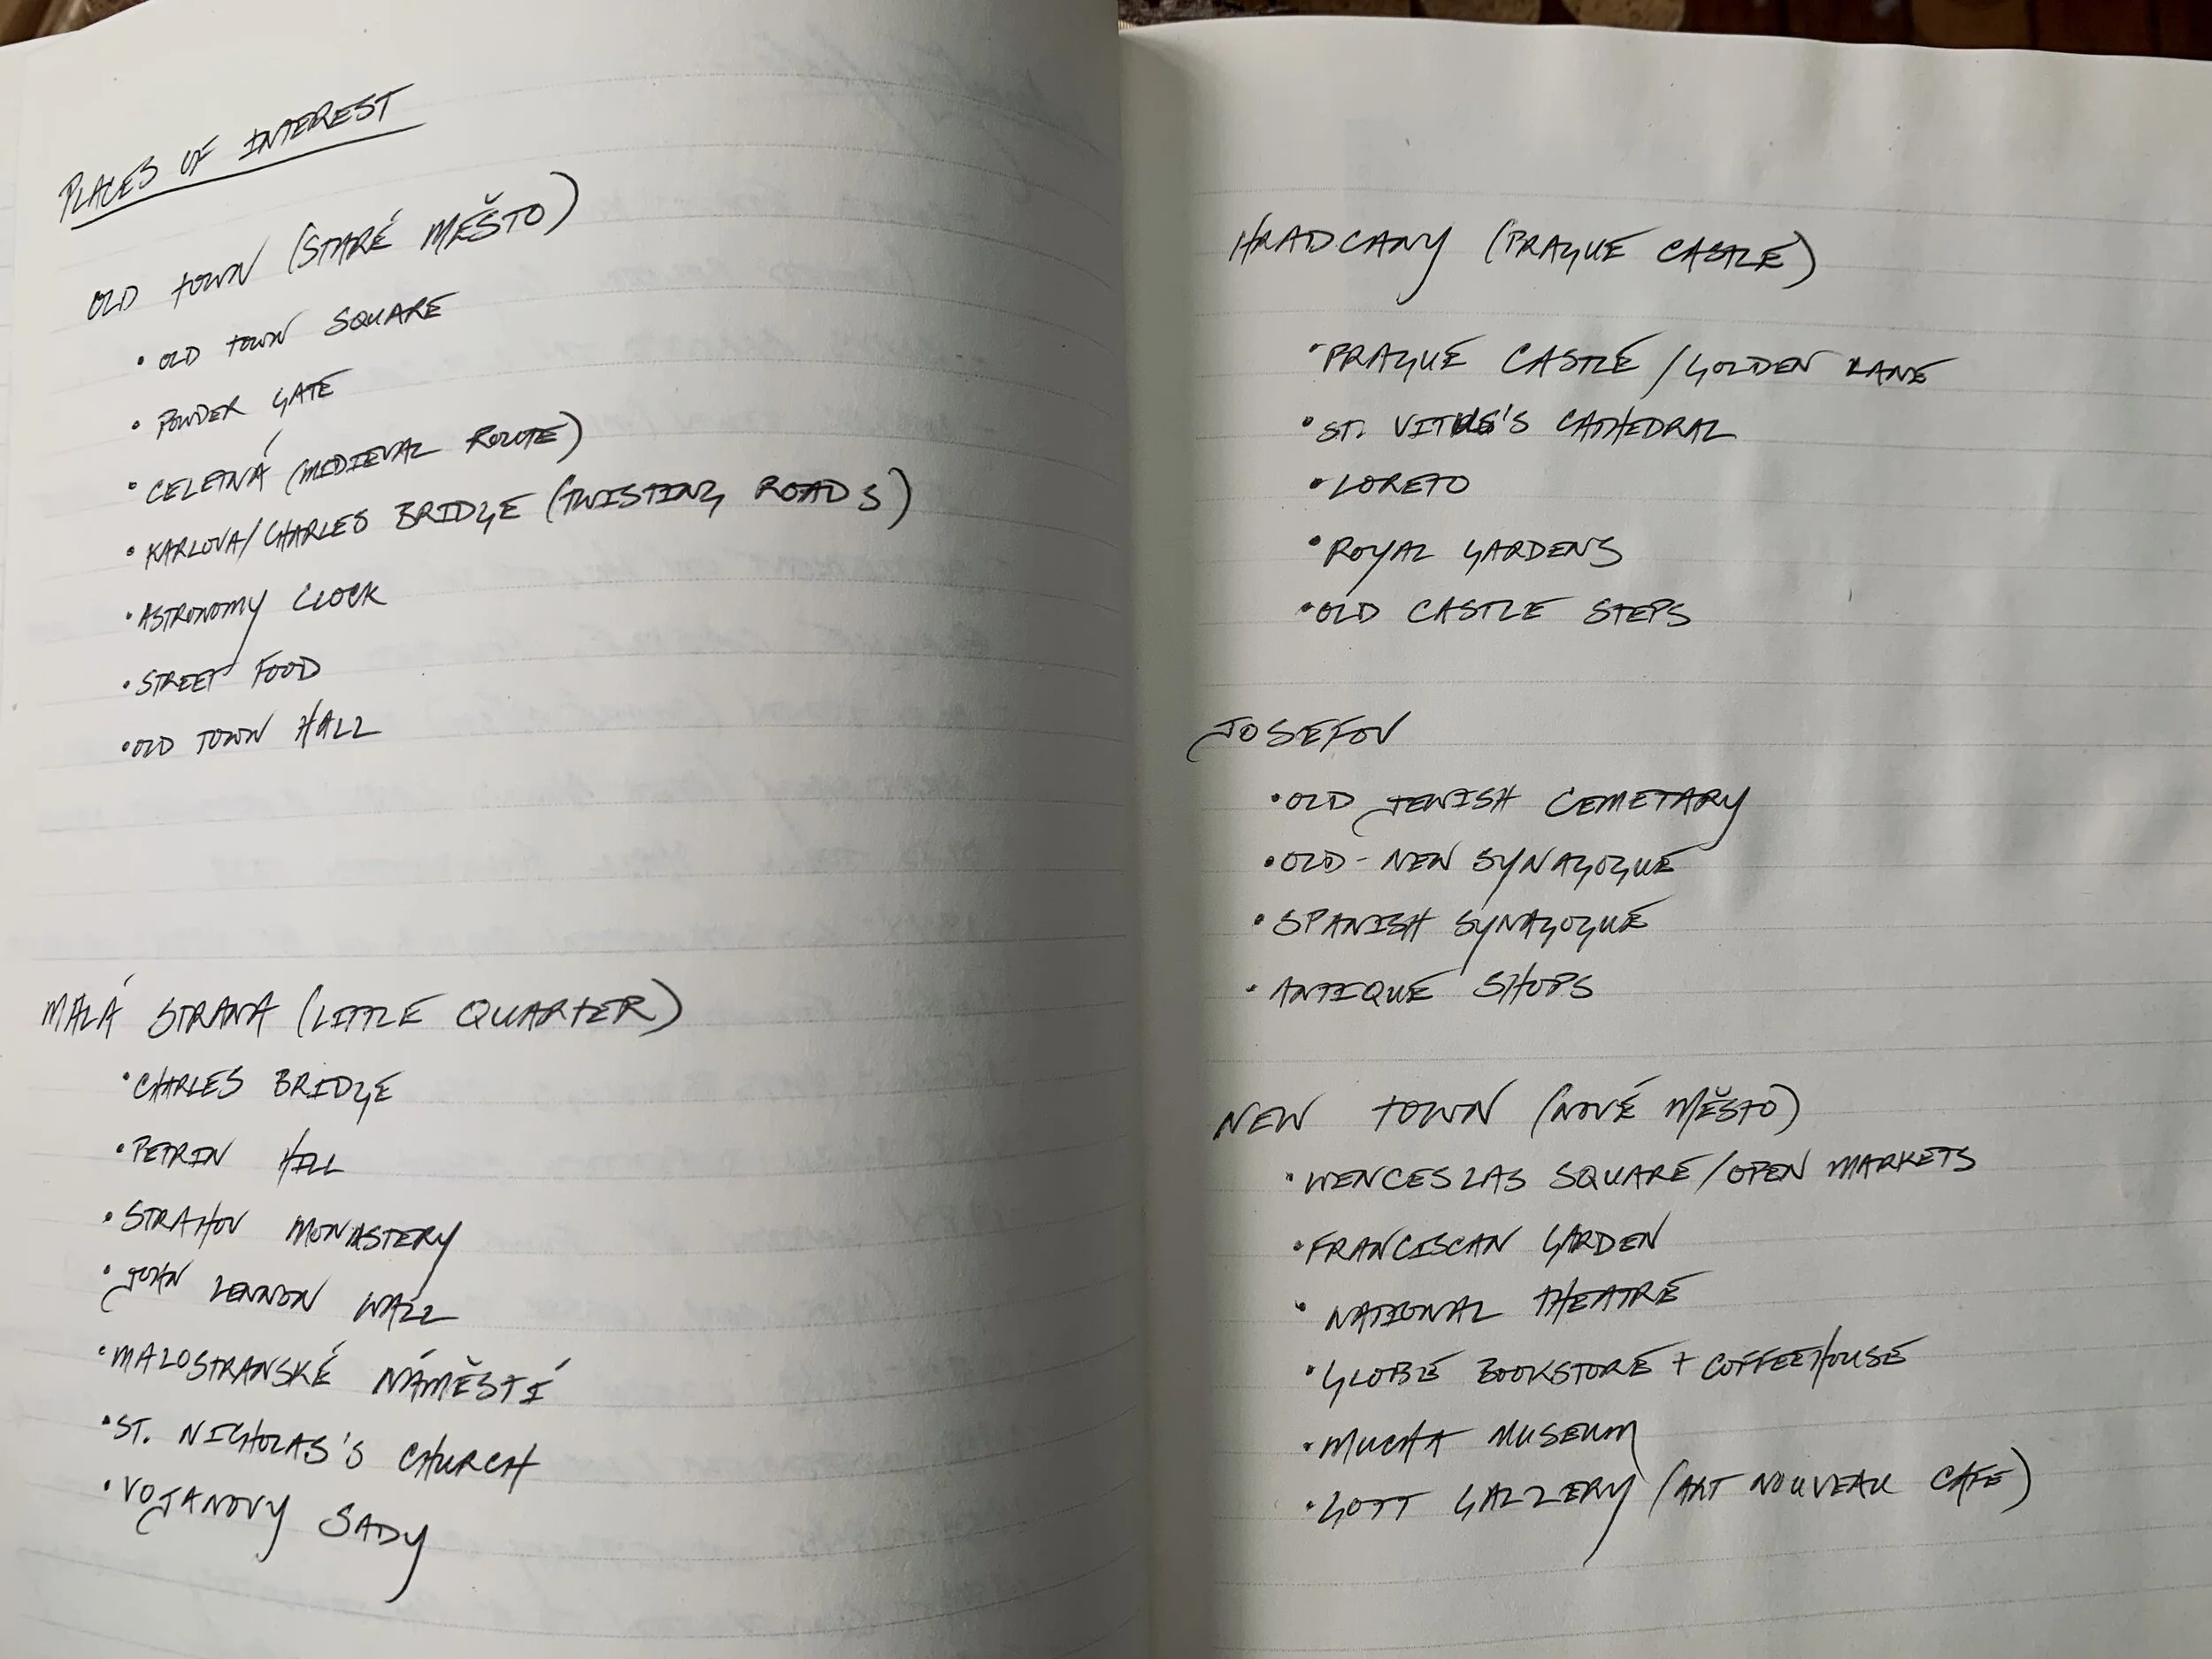 PLACES OF INTEREST
OLD TOWN (STARÉ MĚŠTO)
• OLD TOWN SQUARE
• POWDER GATE
• CELETNÁ (MEDIEVAL ROUTE)
• KARLOVA/CHARLES BRIDGE (TWISTING ROADS)
• ASTRONOMY CLOCK
• STREET FOOD
• OLD TOWN HALL
MALÁ STRANA (LITTLE QUARTER)
• CHARLES BRIDGE
• PETRIN HILL
• STRAHOV MONASTERY
• JOHN LENNON WALL
• MALOSTRANSKÉ NÁMĚSTÍ
• ST. NICHOLAS'S CHURCH
• VOJANOVY SADY
HRADCANY (PRAGUE CASTLE)
• PRAGUE CASTLE / GOLDEN LANE
• ST. VITUS'S CATHEDRAL
• LORETO
• ROYAL GARDENS
• OLD CASTLE STEPS
JOSEFOV
• OLD JEWISH CEMETARY
• OLD-NEW SYNAGOGUE
• SPANISH SYNAGOGUE
• ANTIQUE SHOPS
NEW TOWN (NOVÉ MĚSTO)
• WENCESLAS SQUARE/OPEN MARKETS
• FRANCISCAN GARDEN
• NATIONAL THEATRE
• GLOBE BOOKSTORE + COFFEEHOUSE
• MUCHA MUSEUM
• GOTT GALLERY (ART NOUVEAU CAFE)